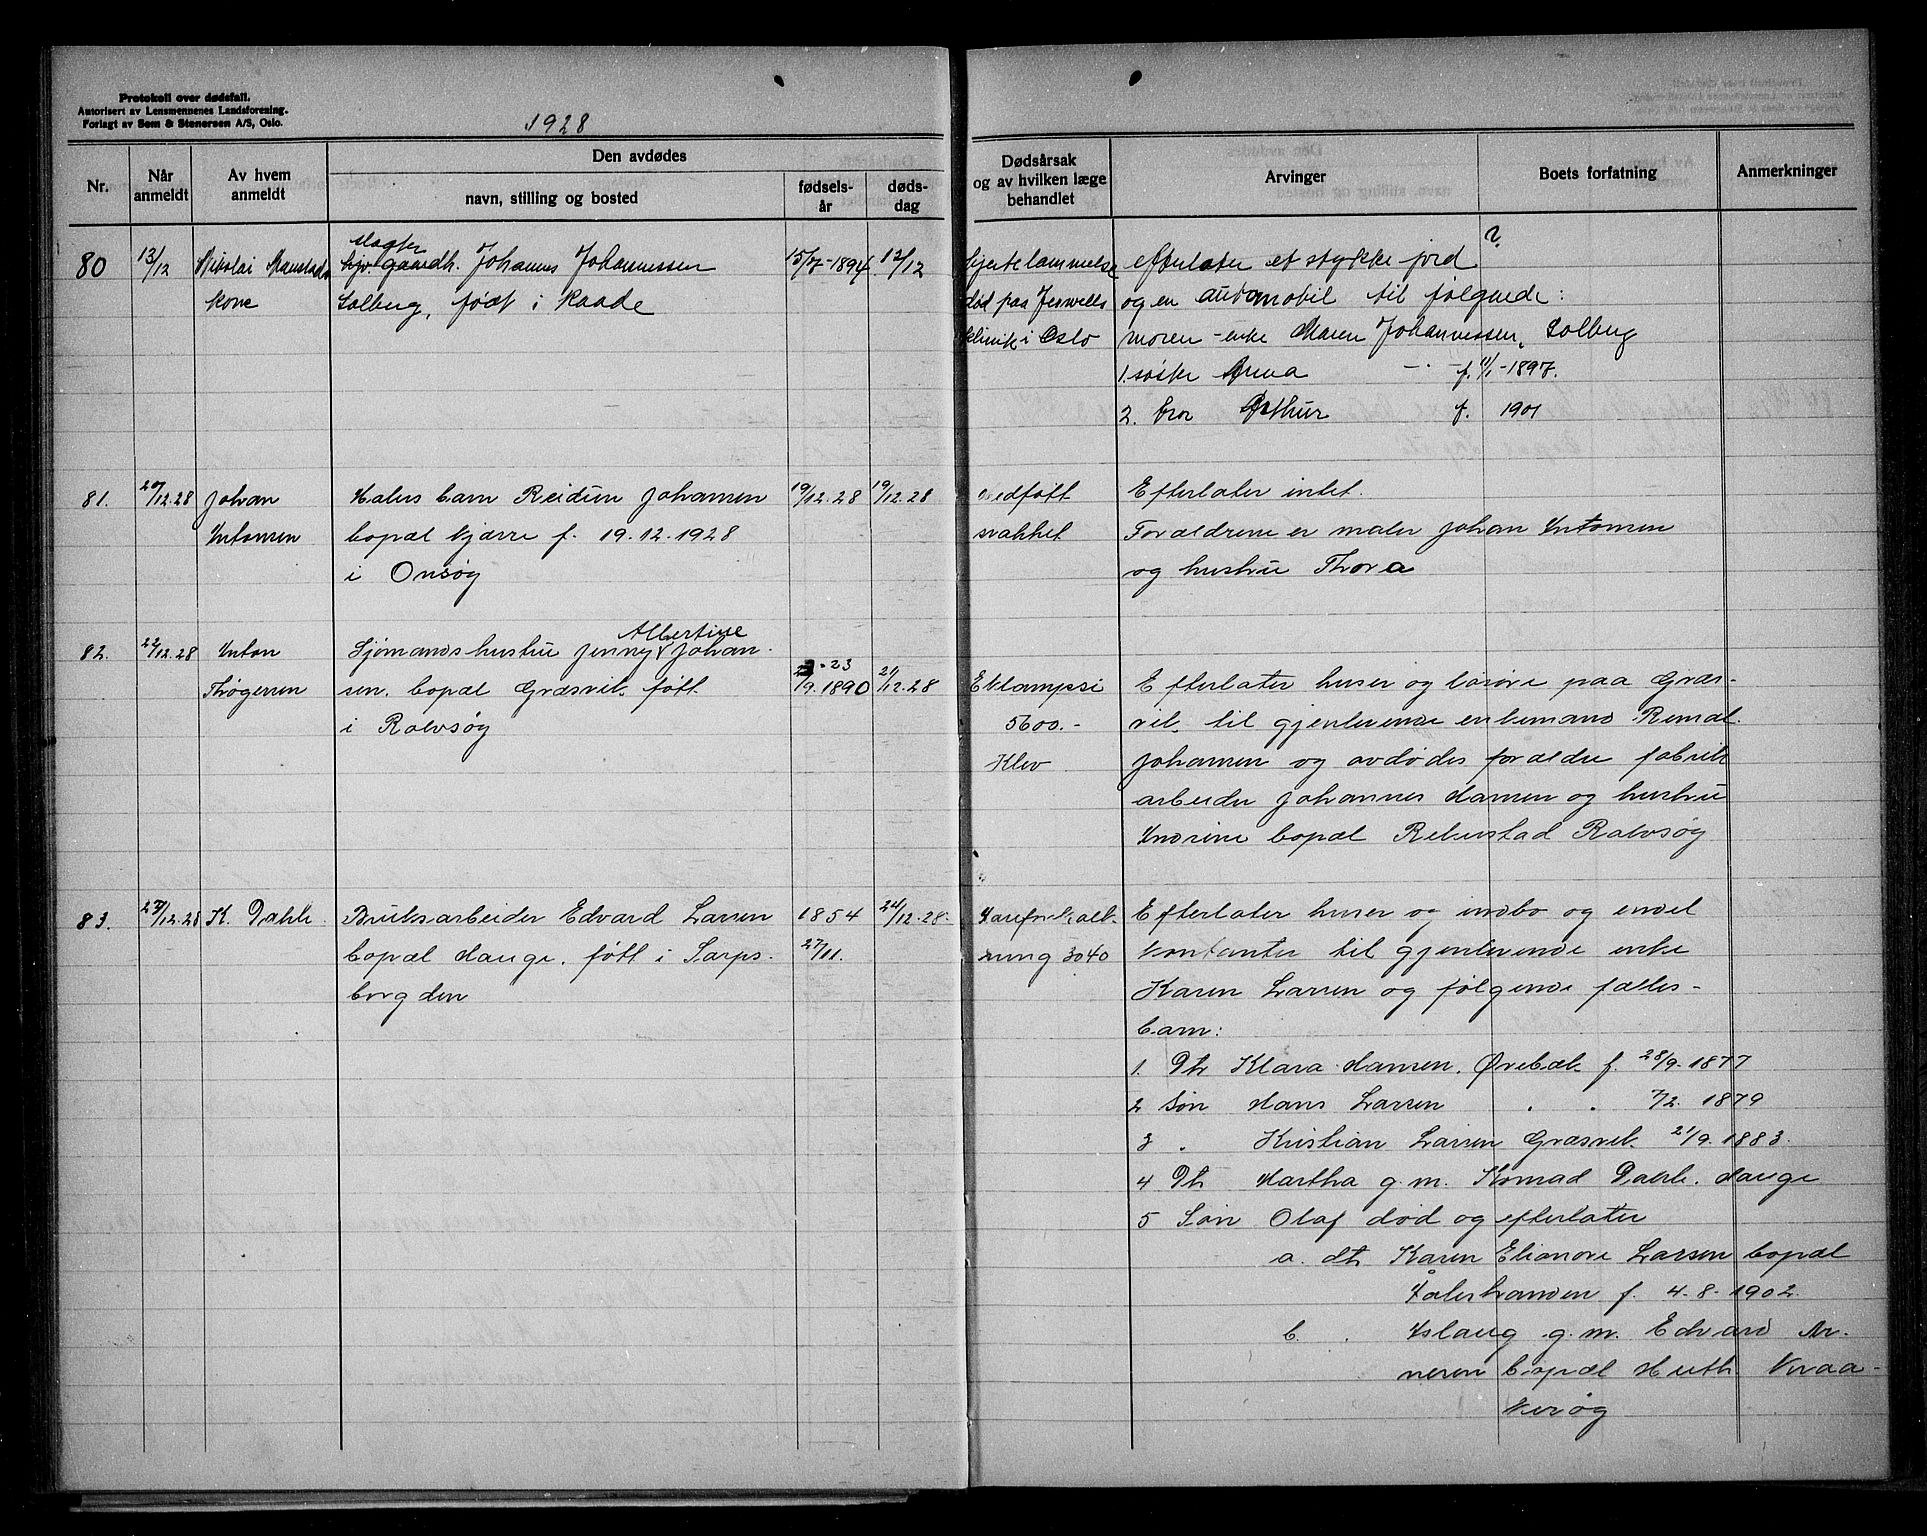 Protokoll over dødsfall.
Autorisert av Lensmennenes Landsforening.
Forlagt av Sem & Stenersen A/S, Oslo.
1928
Nr.
Når anmeldt
Av hvem anmeldt
Den avdødes
navn, stilling og bosted
fødsels-år
døds-dag
Dødsårsak og av hvilken læge behandlet
Arvinger
Boets forfatning
Anmerkninger
80
13/12
Nikolai
kone
slagter
Johannes Johannessen
Solberg, født i Raade
15/7-1894
12/12
hjertelammelse
død paa
klinik i Oslo
?
efterlater et stykke jord
og en automobil til følgende:
moren - enke Maren Johannessen, Solberg
1. søske Anna - " - f. 11/1-1897.
2. bror Arthur f. 1901
81.
20/12.28
Johan
Antonsen
Malers barn Reidun Johansen
bopæl Kjærre f. 19.12.1928
i Onsøy
19/12.28
19/12.28
medføtt
svakhet
Efterlater intet.
Forældrene er maler Johan Antonsen
og hustru Thora
82.
22/12.28
Anton
Thøgersen
Albertine
Sjømandshustru Jenny Johan-
sen, bopæl Græsvik, føtt
i Rolvsøy
23
/9.1890
21/12.28
Eklampsi
5600.-
Kiev
Efterlater huser og løsøre paa Græs-
vik, til gjenlevende enkemand
Johansen og avdødes forældre fabrik
arbeider Johannes Hansen og hustru
Andrine bopæl Rolvsøy
83.
27/12.28
K. Dahle.
Bruksarbeider Edvard Larsen
bopæl Hauge, føtt i Sarps-
borg den
1854
27/11.
24/12.28
Aareforkalk-
ning 3040
Efterlater huser og indbo og endel
kontanter til gjenlevende enke
Karen Larsen og følgende fælles-
barn:
1. Dtr Klara Hansen, Ørebæk f. 28/9.1877
2 Søn Hans Larsen " " 7/2. 1879
3 " Kristian Larsen Græsvik. 21/9.1883.
4 Dtr Martha g.m. Konrad Dahle, Hauge
5 Søn Olaf død og efterlater
a. dtr Karen Elionore Larsen bopæl
Ålestranden f. 4-8-1902.
b. " Aslaug g.m. Edvard Ar-
nesen bopæl Huth Kraa-
kerøy